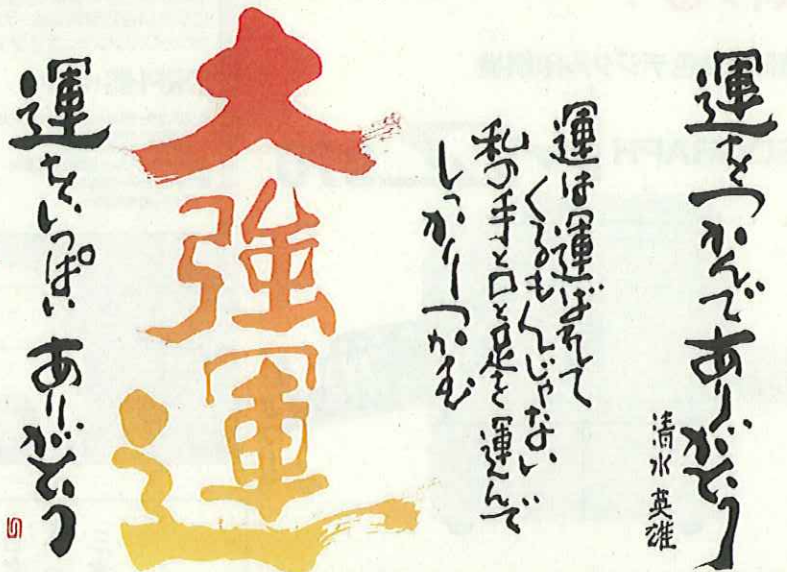 運をつかんでありがとう
清水 英雄
運は運ばれて
くるもんじゃない
私の手と口と足を運んで
しっかりつかむ
大強運
運をいっぱいありがとう